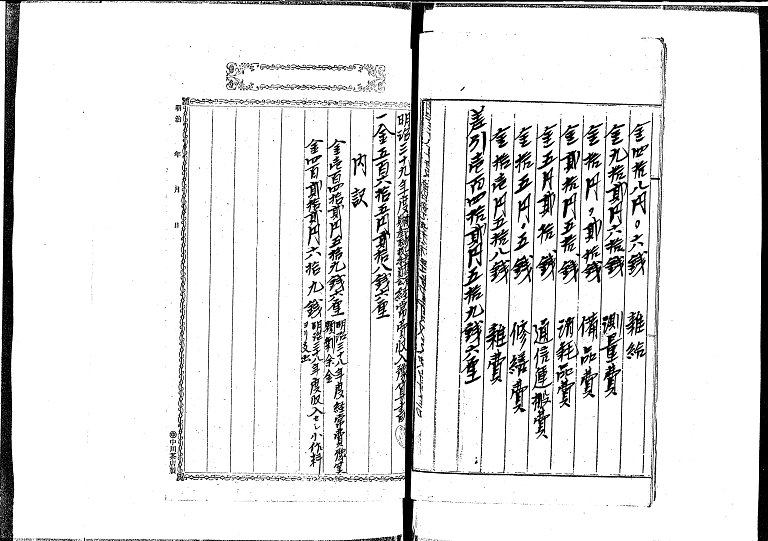 金四拾八円〇六銭 雑給
金九拾貳円六拾銭 測量費
金拾円〇貳拾銭 備品費
金貳拾円五拾銭 消耗品費
金五円貳拾銭 通信運搬費
金拾五円〇五銭 修繕費
金拾壱円五拾八銭 雑費
差引壱百四拾貳円五拾九銭六厘
明治三十九年度 経常費収入豫算書
一金五百六拾五円貳拾八銭六厘
内訳
金壱百四拾貳円五拾九銭六厘 明治三十八年度経常費豫算
剰余金
金四百貳拾貳円六拾九銭 明治三十八年度収入セシ小作料
ヨリ支出
明治 年 月 日